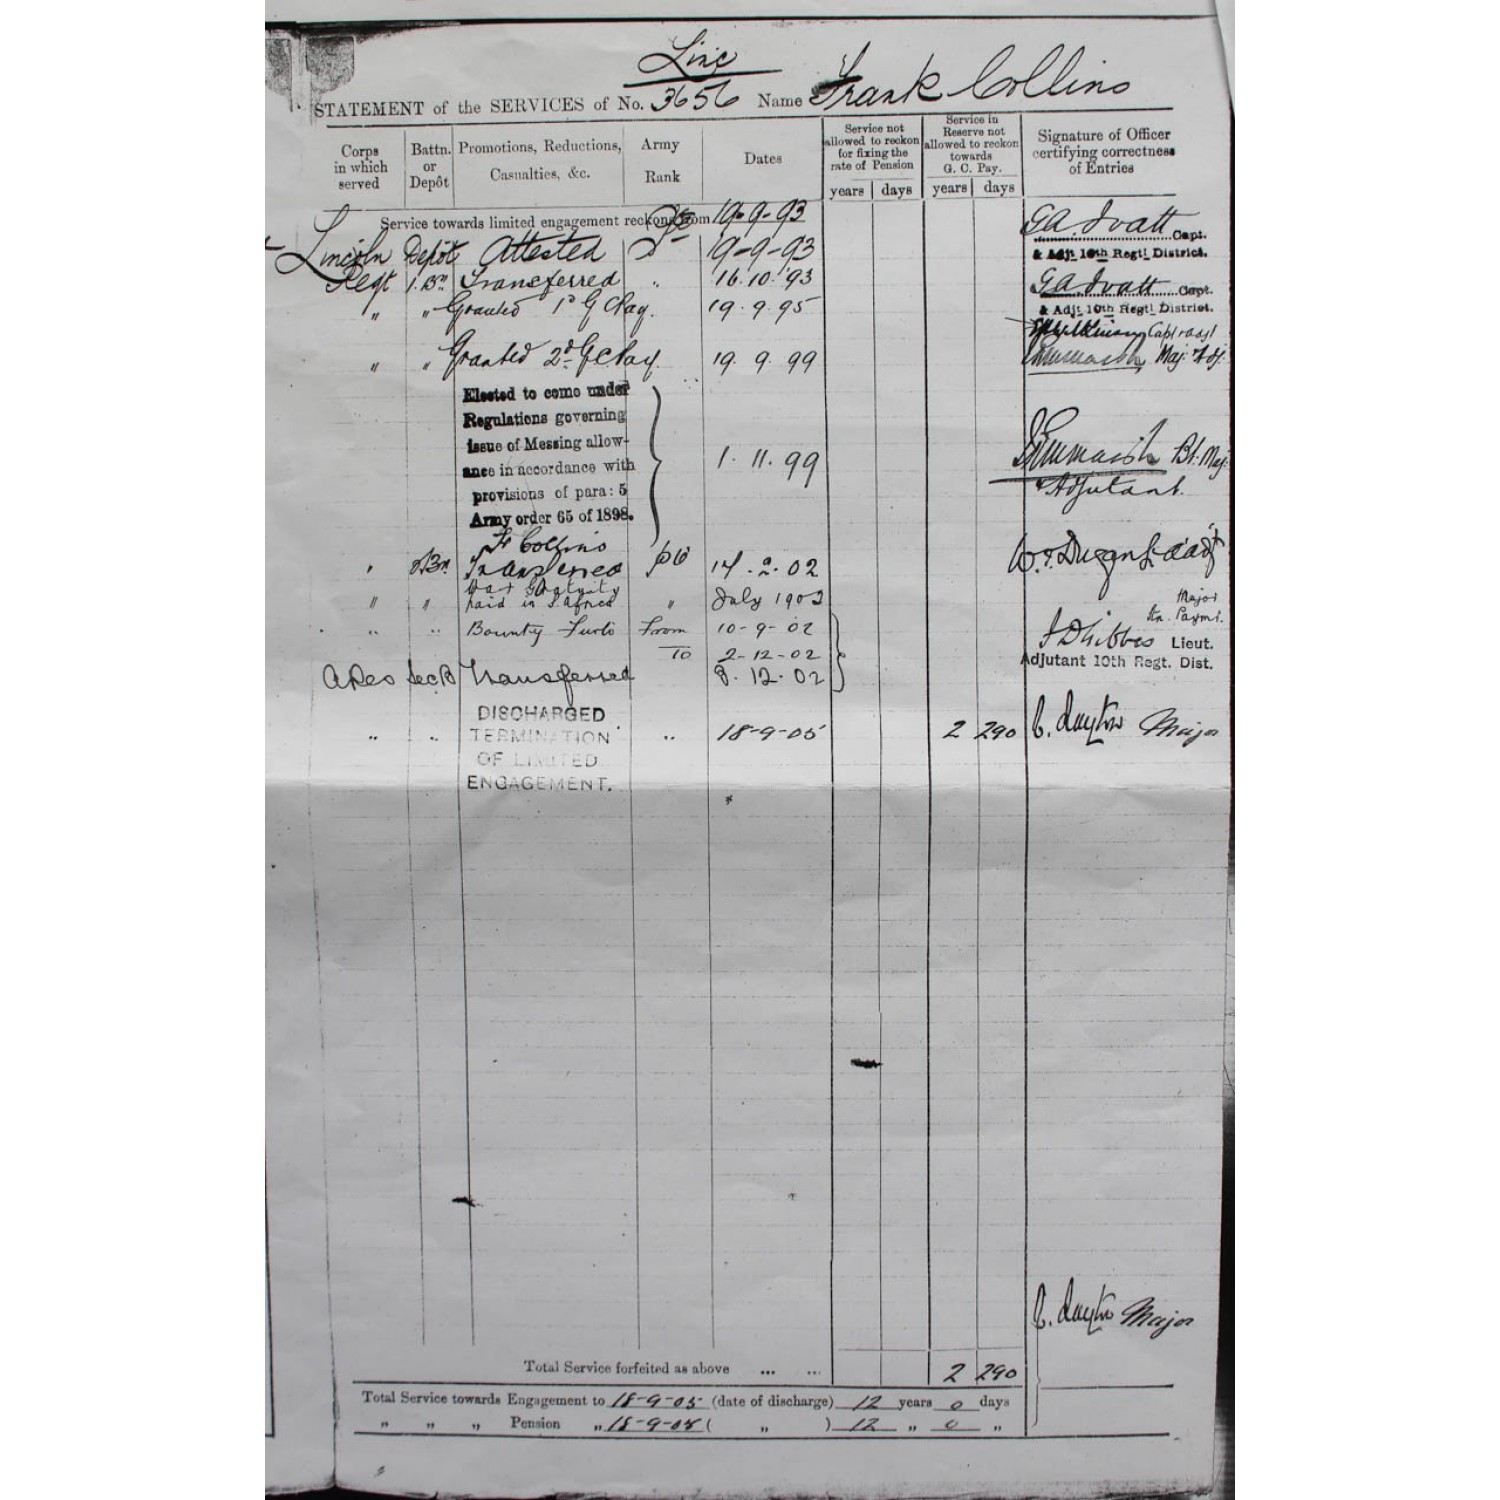 Linc
STATEMENT of the SERVICES of No. 3656 Name Frank Collins
Corps in which served
Battn. or Depôt
Promotions, Reductions, Casualties, &c.
Army Rank
Dates
Service not allowed to reckon for fixing the rate of Pension
years days
Service in Reserve not allowed to reckon towards G. C. Pay.
years days
Signature of Officer certifying correctness of Entries
Service towards limited engagement reckons from 19-9-93
Lincoln Depôt Attested 19-9-93 G A Ivatt Capt.
& Adjt 10th Regtl District.
Regt 1.Bn Transferred " 16.10.'93 G A Ivatt Capt.
& Adjt 10th Regtl District.
" " Granted 1st G C Pay. 19.9.95 Capt & Adjt
" " Granted 2d G C Pay. 19.9.99 Maj. & Adj.
Elected to come under
Regulations governing
issue of Messing allow-
ance in accordance with
provisions of para: 5
Army order 65 of 1898.
1.11.99
Bt. Maj.
Adjutant.
F Collins
" Bn Transferred 14.2.02
" " War Gratuity
paid in S. Africa " July 1902 Major
" " Bounty Furlo From 10-9-02 Lieut.
To 2-12-02 Adjutant 10th Regt. Dist.
A Res Sec B Transferred 8.12.02
" " DISCHARGED
TERMINATION " 18-9-05 2 290 Major
OF LIMITED
ENGAGEMENT.
Major
Total Service forfeited as above ... ... 2 290
Total Service towards Engagement to 18-9-05 (date of discharge) 12 years 0 days
" " " Pension " 18-9-05 ( " ) 12 " 0 "